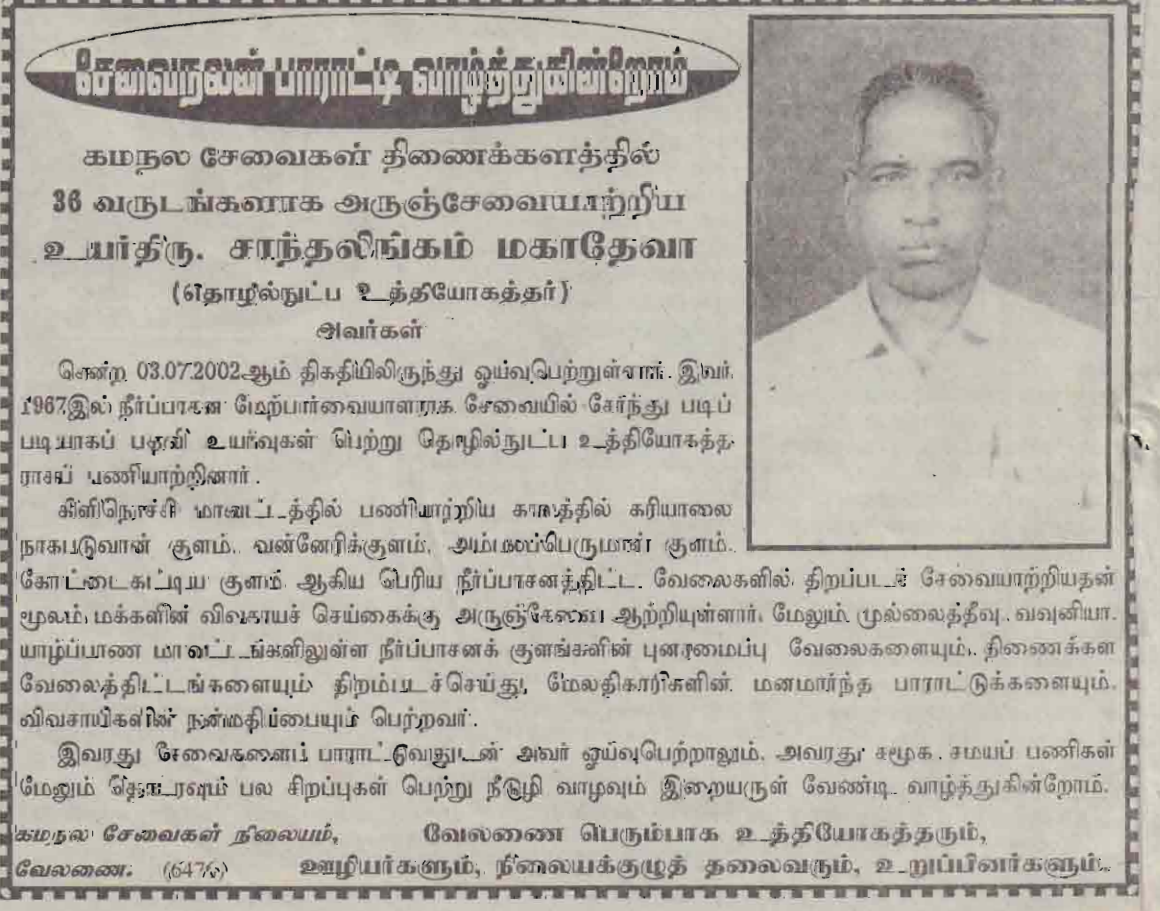 சேவைநலன் பாராட்டி வாழ்த்துகின்றோம்
கமநல சேவைகள் திணைக்களத்தில்
36 வருடங்களாக அருஞ்சேவையாற்றிய
உயர்திரு. சாந்தலிங்கம் மகாதேவா
(தொழில்நுட்ப உத்தியோகத்தர்)
அவர்கள்
சென்ற 03.07.2002ஆம் திகதியிலிருந்து ஓய்வுபெற்றுள்ளார். இவர்
1967இல் நீர்ப்பாசன மேற்பார்வையாளராக சேவையில் சேர்ந்து படிப்
படியாகப் பதவி உயர்வுகள் பெற்று தொழில்நுட்ப உத்தியோகத்த
ராகப் பணியாற்றினார்.
கிளிநொச்சி மாவட்டத்தில் பணியாற்றிய காலத்தில் கரியாலை
நாகபடுவான் குளம், வன்னேரிக்குளம், அம்பலப்பெருமாள் குளம்,
கோட்டைகட்டிய குளம் ஆகிய பெரிய நீர்ப்பாசனத்திட்ட வேலைகளில் திறப்படச் சேவையாற்றியதன்
மூலம் மக்களின் விவசாயச் செய்கைக்கு அருஞ்சேவை ஆற்றியுள்ளார். மேலும் முல்லைத்தீவு, வவுனியா,
யாழ்ப்பாண மாவட்டங்களிலுள்ள நீர்ப்பாசனக் குளங்களின் புனரமைப்பு வேலைகளையும், திணைக்கள
வேலைத்திட்டங்களையும் திறம்படச்செய்து, மேலதிகாரிகளின் மனமார்ந்த பாராட்டுக்களையும்,
விவசாயிகளின் நன்மதிப்பையும் பெற்றவர்.
இவரது சேவைகளைப் பாராட்டுவதுடன் அவர் ஓய்வுபெற்றாலும், அவரது சமூக, சமயப் பணிகள்
மேலும் தொடரவும் பல சிறப்புகள் பெற்று நீடூழி வாழவும் இறையருள் வேண்டி வாழ்த்துகின்றோம்.
கமநல சேவைகள் நிலையம், வேலணை பெரும்பாக உத்தியோகத்தரும்,
வேலணை. (6476) ஊழியர்களும், நிலையக்குழுத் தலைவரும், உறுப்பினர்களும்.